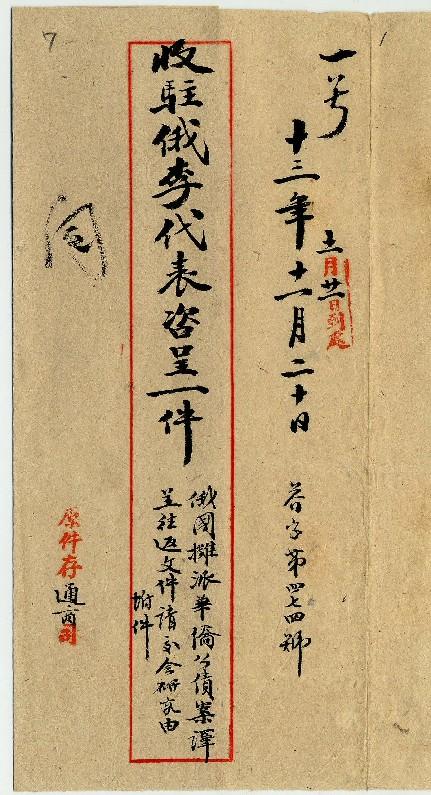 一号
十一月廿日到處
十三年十一月二十日
荅字第四七四號
收駐俄李代表咨呈一件
俄國攤派華僑公債案譯
呈往返文件請交會研究由
附件
原件存通商司
7